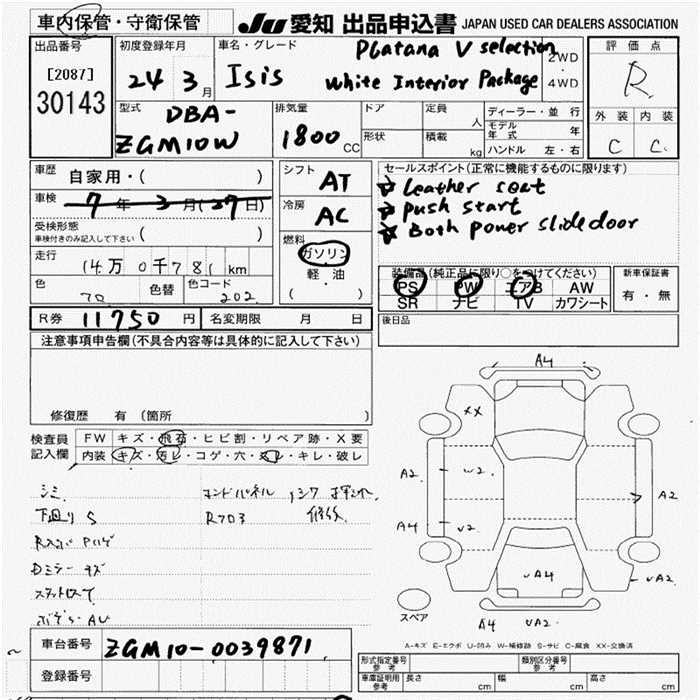 車内保管・守衛保管 JU 愛知 出品申込書 JAPAN USED CAR DEALERS ASSOCIATION
出品番号 初度登録年月 車名・グレード Platana V selection 2WD 評価点
[2087] 24 3月 Isis White Interior Package 4WD R
30143 型式 DBA- 排気量 ドア 定員 人 ディーラー・並行 外装 内装
ZGM10W 1800CC 形状 積載 kg モデル年式 年 C C
ハンドル 左・右
車歴 自家用・( ) シフト AT セールスポイント(正常に機能するものに限ります)
車検 7年3月(27日) 冷房 AC Leather seat
受検形態 push start
車検付きのみ記入して下さい ( ) 燃料 Both power slide door
走行 14万0千781km ガソリン 装備品(純正品に限り○をつけてください) 新車保証書
色 70 色替 色コード 202 軽・油 PS PW エアB AW 有・無
( ・ ) SR ナビ TV カワシート
R券 11750円 名変期限 月 日 後日品
注意事項申告欄(不具合内容等は具体的に記入して下さい)
修復歴 有(箇所 )
検査員 FW キズ・飛石・ヒビ割・リペア跡・X要
記入欄 内装 キズ・汚レ・コゲ・穴・スレ・キレ・破レ
シミ
下廻りS
Dミラーキズ
A4
XX
A2 W2 A2
A4 V2
A4
A4
スペア
A-キズ E-エクボ U-凹み W-補修跡 S-サビ C-腐食 XX-交換済
車台番号 ZGM10-0039871
登録番号
形式指定番号 参考 類別区分番号 参考
車庫証明用 参考 長さ cm 幅 cm 高さ cm